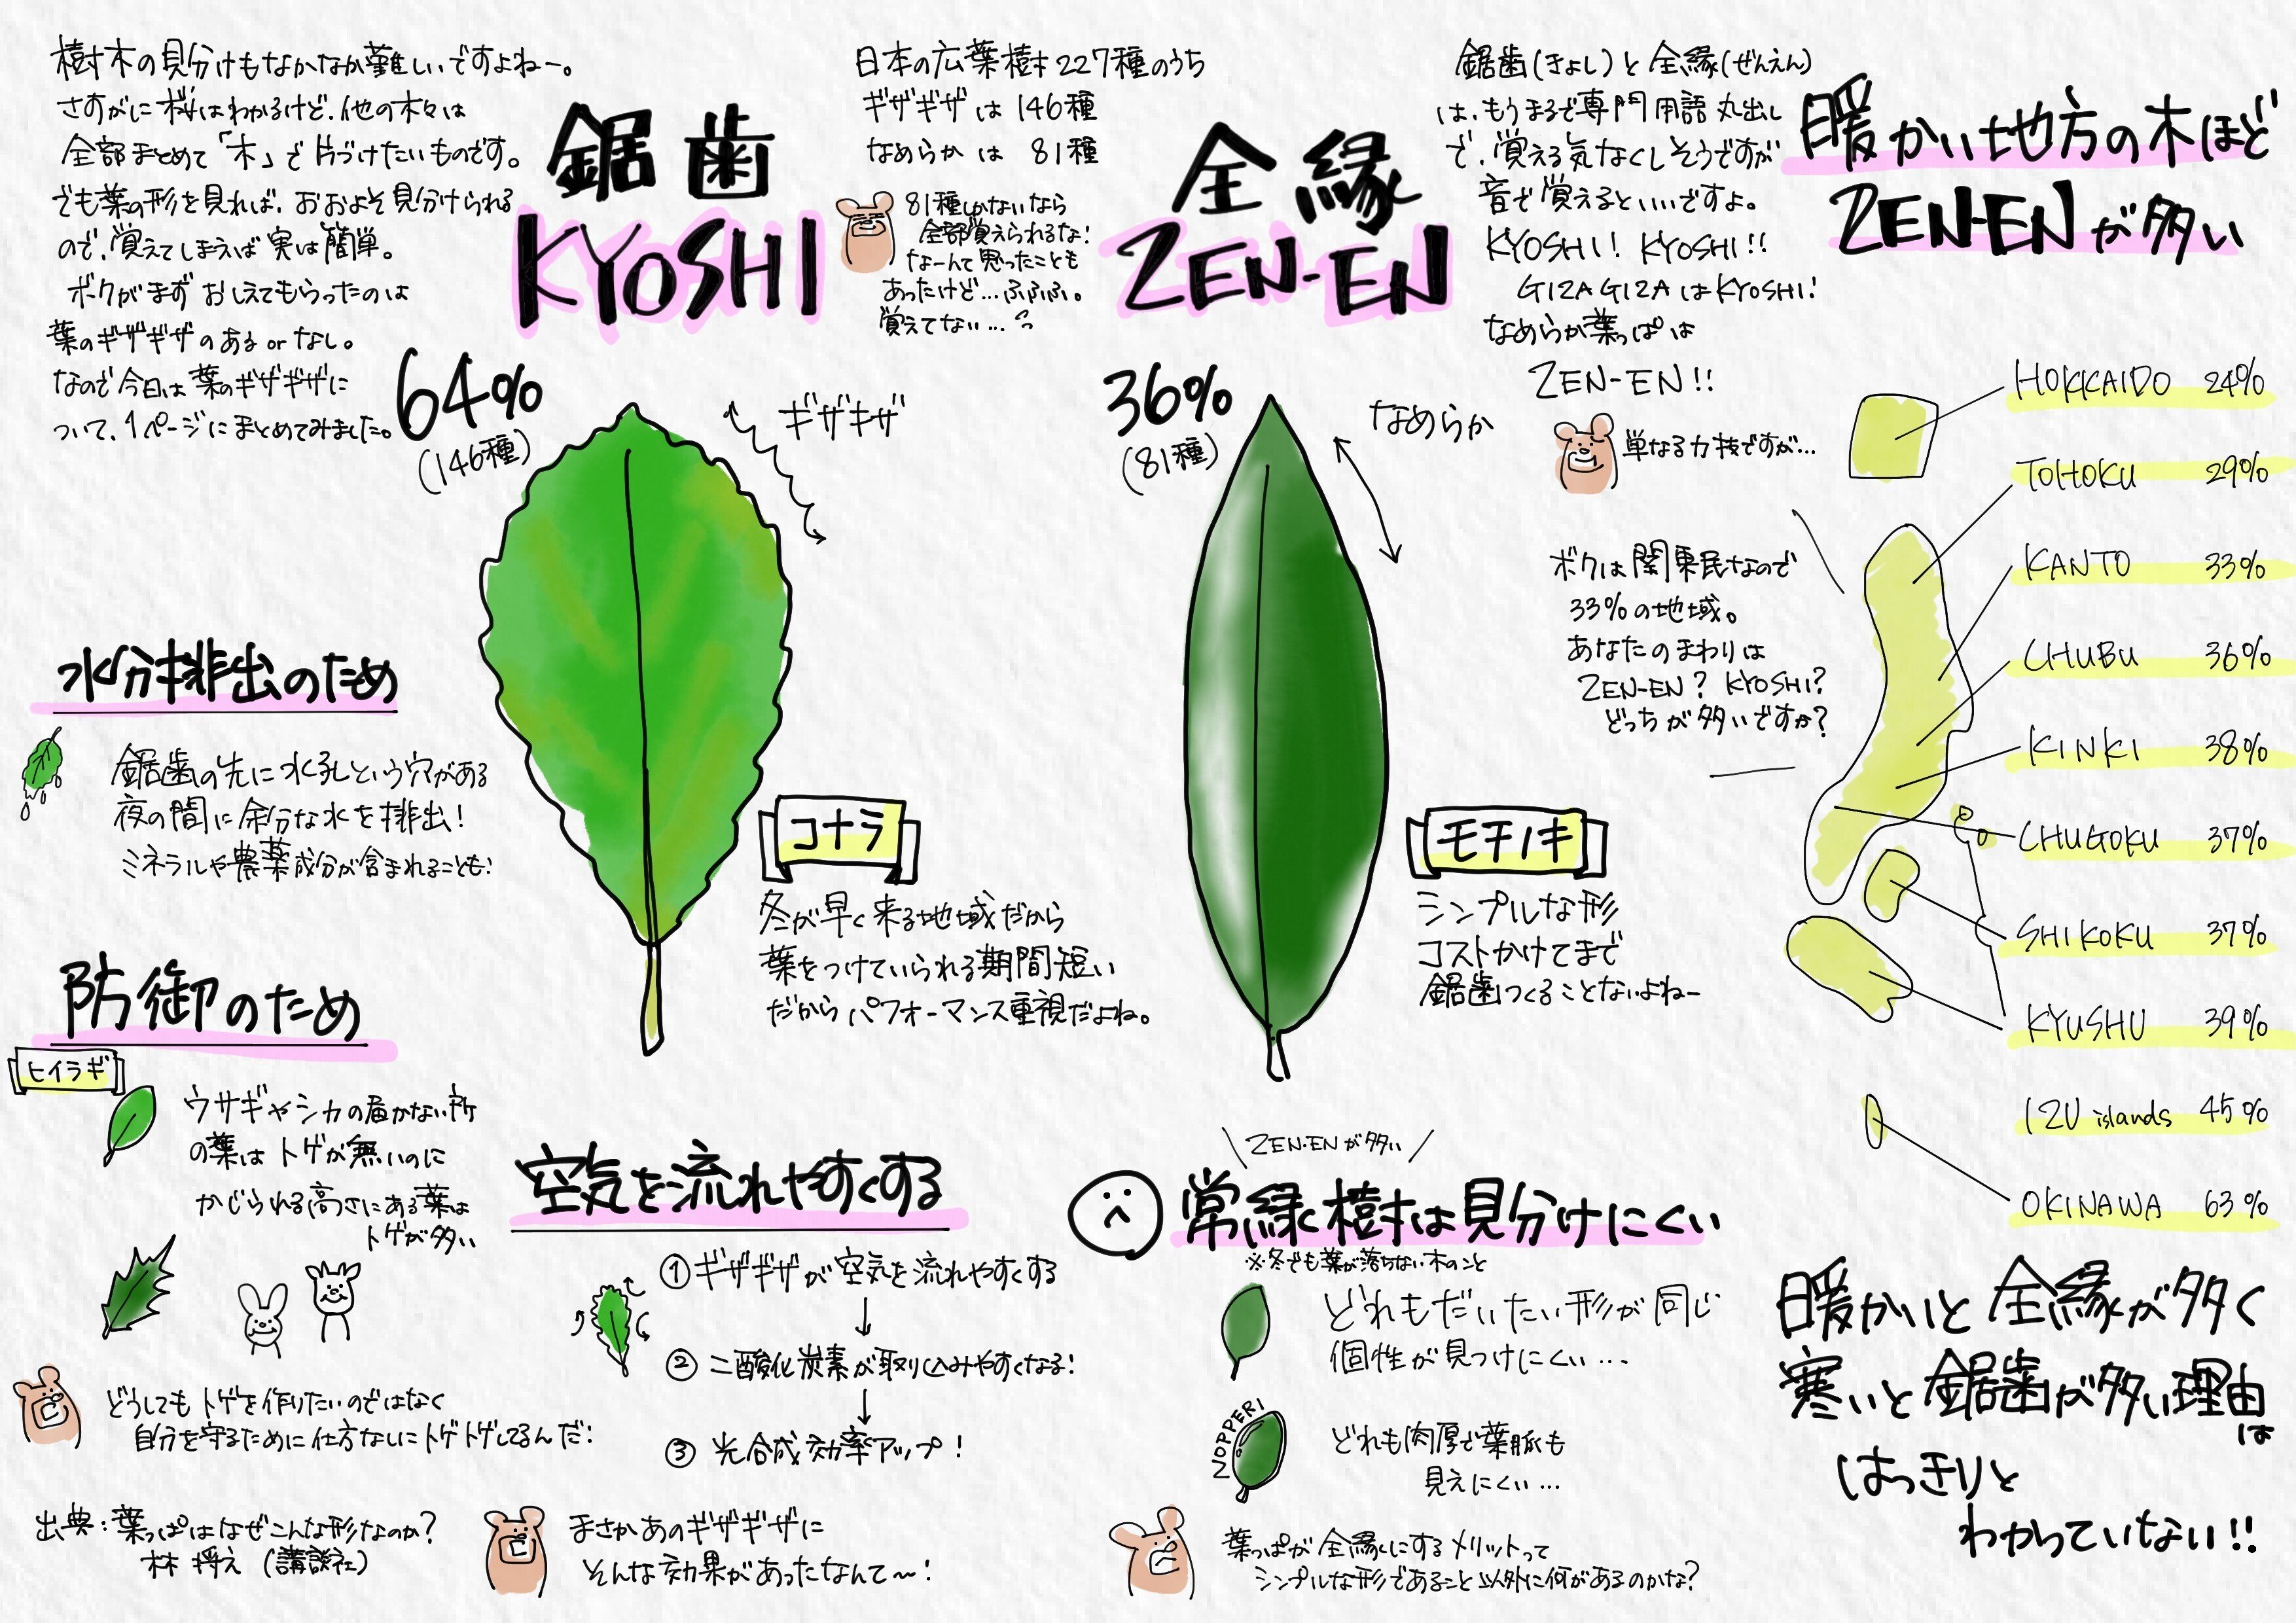 樹木の見分けもなかなか難しいですよねー。
さすがに桜はわかるけど、他の木々は
全部まとめて「木」で片づけたいものです。
でも葉の形を見れば、おおよそ見分けられる
ので、覚えてしまえば実は簡単。
ボクがまずおしえてもらったのは
葉のギザギザのあるorなし。
なので今日は葉のギザギザに
ついて、1ページにまとめてみました。
鋸歯
KYOSHI
64%
(146種)
ギザギザ
日本の広葉樹227種のうち
ギザギザは146種
なめらかは81種
81種しかないなら
全部覚えられるな!
なーんて思ったことも
あったけど…ふふふ。
覚えてない…
全縁
ZEN-EN
36%
(81種)
なめらか
鋸歯(きょし)と全縁(ぜんえん)
は、もうまるで専門用語丸出し
で、覚える気なくしそうですが
音で覚えるといいですよ。
KYOSHI! KYOSHI!!
GIZAGIZAはKYOSHI!
なめらか葉っぱは
ZEN-EN!!
単なる力技ですが…
暖かい地方の木ほど
ZEN-ENが多い
HOKKAIDO 24%
TOHOKU 29%
KANTO 33%
CHUBU 36%
KINKI 38%
CHUGOKU 37%
SHIKOKU 37%
KYUSHU 39%
IZU islands 45%
OKINAWA 63%
ボクは関東民なので
33%の地域。
あなたのまわりは
ZEN-EN? KYOSHI?
どっちが多いですか?
水分排出のため
鋸歯の先に水孔という穴がある
夜の間に余分な水を排出!
ミネラルや農薬成分が含まれることも!
コナラ
冬が早く来る地域だから
葉をつけていられる期間短い
だからパフォーマンス重視だよね。
モチノキ
シンプルな形
コストかけてまで
鋸歯つくることないよねー
防御のため
ヒイラギ
ウサギやシカの届かない所
の葉はトゲが無いのに
かじられる高さにある葉は
トゲが多い
どうしてもトゲを作りたいのではなく
自分を守るために仕方ないにトゲトゲしてるんだ!
出典:葉っぱはなぜこんな形なのか?
林 将之 (講談社)
空気を流れやすくする
①ギザギザが空気を流れやすくする
↓
②二酸化炭素が取り込みやすくなる!
↓
③光合成効率アップ!
まさかあのギザギザに
そんな効果があったなんて〜!
\ZEN-ENが多い/
常緑樹は見分けにくい
※冬でも葉が落ちない木のこと
どれもだいたい形が同じ
個性が見つけにくい…
NOPPERI
どれも肉厚で葉脈も
見えにくい…
葉っぱが全縁にするメリットって
シンプルな形であること以外に何があるのかな?
暖かいと全縁が多く
寒いと鋸歯が多い理由
は
はっきりと
わかっていない!!